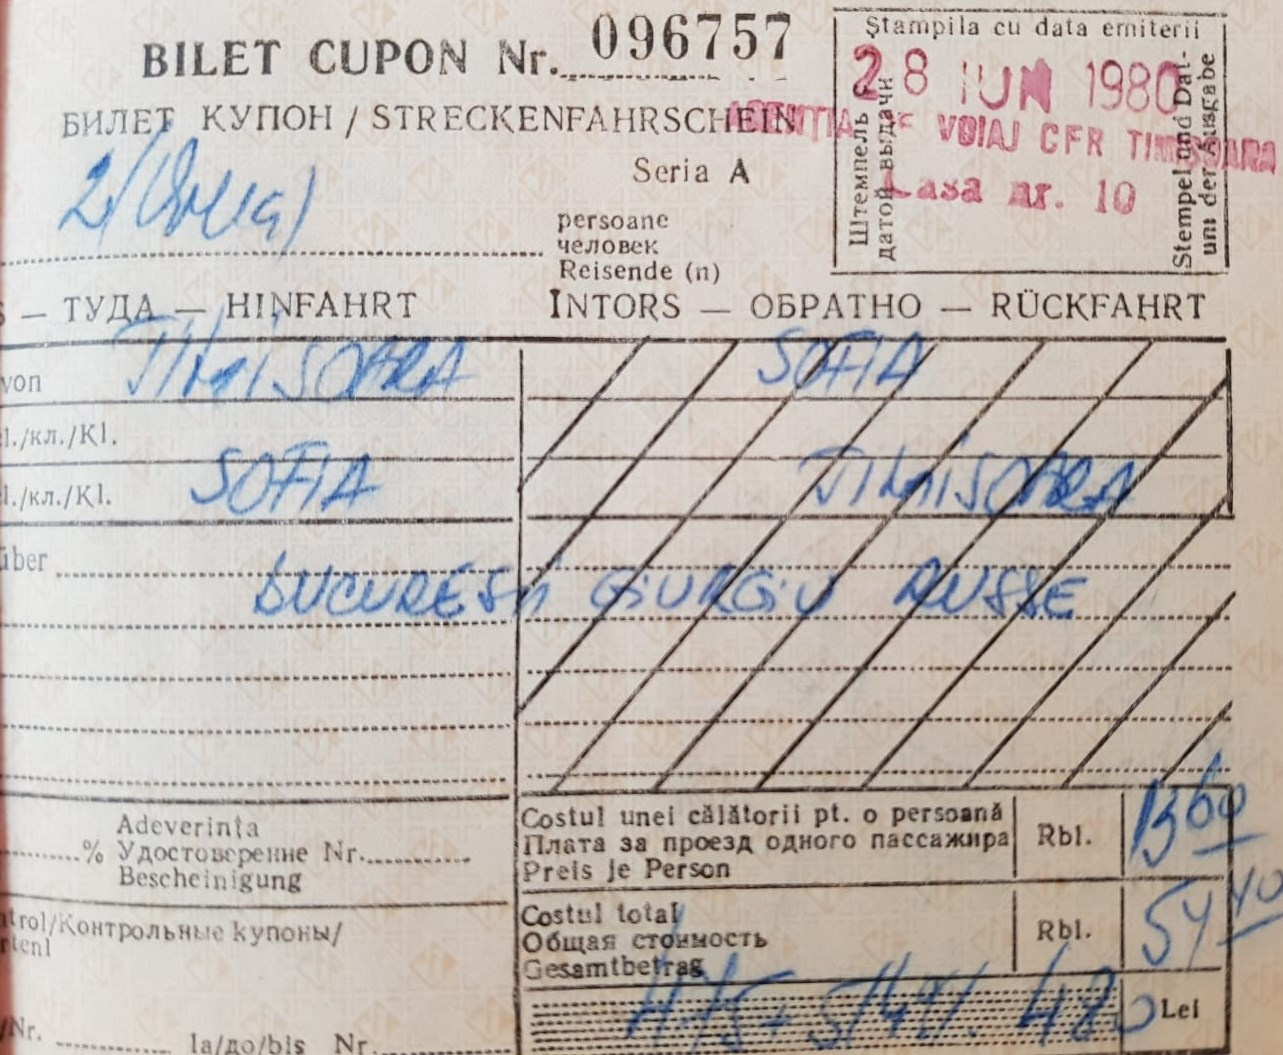 BILET CUPON Nr. 096757
БИЛЕТ КУПОН / STRECKENFAHRSCHEIN
Seria A
2/
persoane
человек
Reisende (n)
Ştampila cu data emiterii
Штемпель с датой выдачи
Stempel und Dat-
um der Ausgabe
28 IUN 1980
AGENTIA DE VOIAJ CFR TIMISOARA
Casa nr. 10
S — ТУДА — HINFAHRT
INTORS — ОБРАТНО — RÜCKFAHRT
von TIMISOARA
SOFIA
l./кл./Kl.
l./кл./Kl. SOFIA
TIMISOARA
über
BUCURESTI GIURGIU RUSSE
Adeverinţa
% Удостоверение Nr.
Bescheinigung
Costul unei călătorii pt. o persoană
Плата за проезд одного пассажира
Preis je Person
Rbl. 1360
Costul total
Общая стоимость
Gesamtbetrag
Rbl. 5440
trol/Контрольные купоны/
Lei
/Nr. la/до/bis Nr.